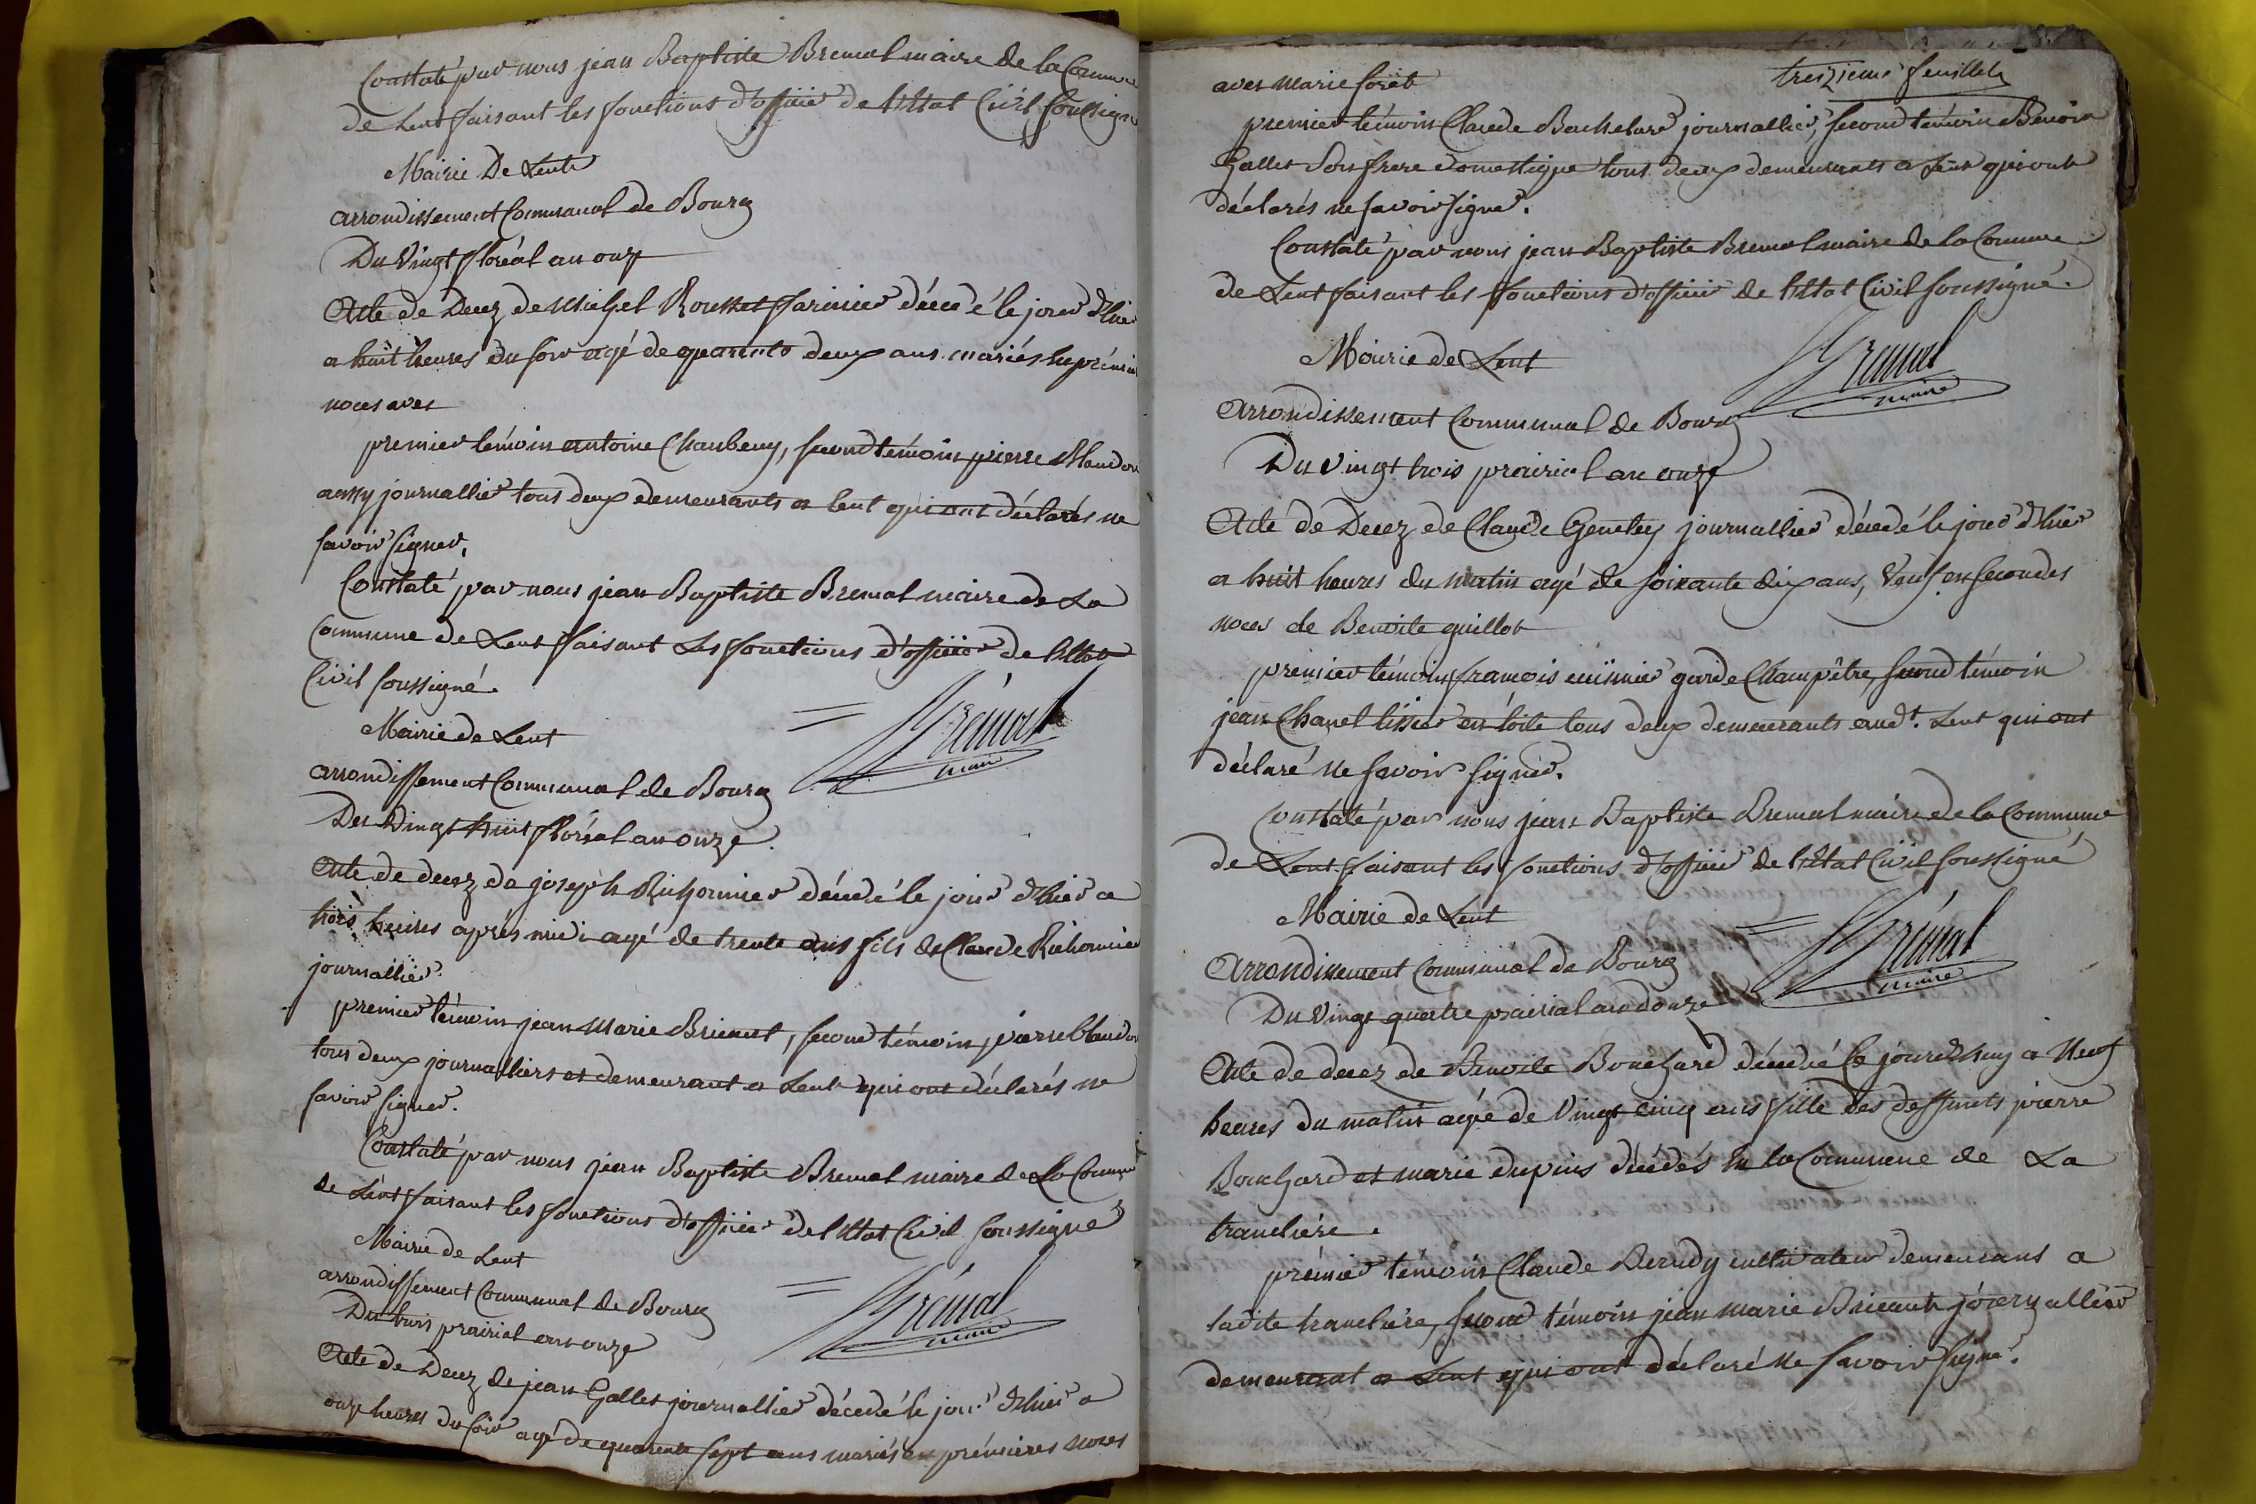 Constaté par nous jean Baptiste Bremal maire de la Commune
de Lent faisant les fonctions d'officier de l'Etat Civil soussigné
Mairie De Lent
arrondissement Communal de Bourg
Du Vingt floréal an onze
Acte de Decez de Michel Rousset farinier décédé le jour d'hier
a huit heures du soir agé de quarante deux ans mariés en prémieres
noces avec
premier témoin antoine Chaubeuy, second témoin pierre Blandon
aussy journallier tous deux demeurants a Lent qui ont déclarés ne
savoir signer,
Constaté par nous jean Baptiste Bremal maire de La
Commune de Lent faisant Les fonctions d'officier de l'Etat
Civil soussigné.
Brémal
maire
Mairie de Lent
arrondissement Communal de Bourg
Du Vingt huit floréal an onze
Acte de decez de joseph Richonnier décédé le jour d'hier a
trois heures aprés midi agé de trente ans fils de Claude Richonnier
journallier.
premier témoin jean Marie Brieant, second témoin pierre Blandon
tous deux journalliers et demeurant a Lent qui ont déclarés ne
savoir signer.
Constaté par nous jean Baptiste Bremal maire de La Commune
de Lent faisant les fonctions d'officier de l'Etat Civil soussigné
Brémal
maire
Mairie de Lent
arrondissement Communal de Bourg
Du trois prairial an onze
Acte de Decez de jean Gallet journallier décédé le jour d'hier a
onze heures du soir agé de quarente sept ans mariés en prémieres noces
treizieme feuillet
avec marie forêt
premier témoin Claude Bachelard journallier, second témoin Benoit
Gallet Son frere domestique tous deux demeurants a Lent qui ont
déclarés ne savoir signer.
Constaté par nous jean Baptiste Bremal maire de la Commune
de Lent faisant les fonctions d'officier de l'Etat Civil soussigné.
Brémal
maire
Mairie de Lent
arrondissement Communal de Bourg
Du vingt trois prairial an onze
Acte de Decez de Claude Genetey journallier décédé le jour d'hier
a huit heures du matin agé de soixante dix ans, Veuf en secondes
noces de Benoite guillot
premier témoin françois cuisinier garde Champêtre, second témoin
jean Chanel tissier en toile tous deux demeurants aud.t Lent qui ont
déclaré ne savoir signer.
Constaté par nous jean Baptiste Bremal maire de la Commune
de Lent faisant les fonctions d'officier de l'Etat Civil soussigné
Brémal
maire
Mairie de Lent
Arrondissement Communal de Bourg
Du Vingt quatre prairial an donze
Acte de decez de Benoite Bouchard décédé Ce jourdhuy a Neuf
heures du matin agée de Vingt cinq ans fille des deffunts pierre
Bouchard et marie dupuis décédés En la Commune de La
tranclière.
prémier témoin Claude Derudy cultivateur demeurans a
ladite tranclière, second témoin jean marie Brieant journallier
demeurant a Lent qui ont déclaré ne savoir signer.